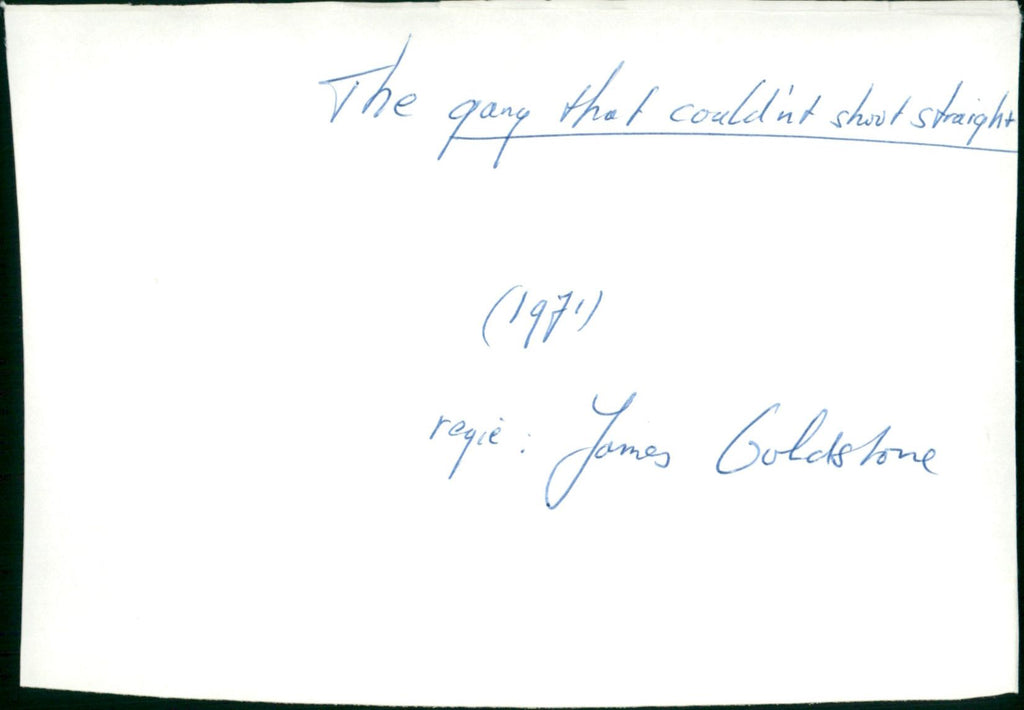 The gang that could'nt shoot straight
(1971)
regie: James Goldstone